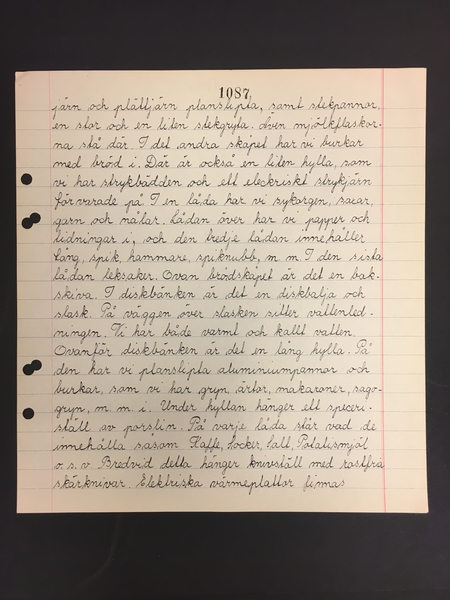 1087
järn och plättjärn planslipta, samt stekpannor,
en stor och en liten stekgryta. Även mjölkflaskor-
na stå där. I det andra skåpet har vi burkar
med bröd i. Där är också en liten hylla, som
vi har strykbädden och ett eleckriskt strykjärn
förvarade på I en låda har vi sykorgen, saxar,
garn och nålar. Lådan över har vi papper och
tidningar i, och den tredje lådan innehåller
tång, spik, hammare, spiknubb, m. m I den sista
lådan leksaker. Ovan brödskåpet är det en bak-
skiva. I diskbänken är det en diskbalja och
slask. På väggen över slasken sitter vattenled-
ningen. Vi har både varmt och kallt vatten.
Ovanför diskbänken är det en lång hylla. På
den har vi planslipta aluminiumpannor och
burkar, som vi har gryn, ärtor, makaroner, sago-
gryn, m. m. i. Under hyllan hänger ett speceri-
ställ av porslin. På varje låda står vad de
innehålla såsom Kaffe, Socker, Salt, Potatismjöl
o. s. v. Bredvid detta hänger knivställ med rostfria
skärknivar. Elektriska värmeplattor finnas